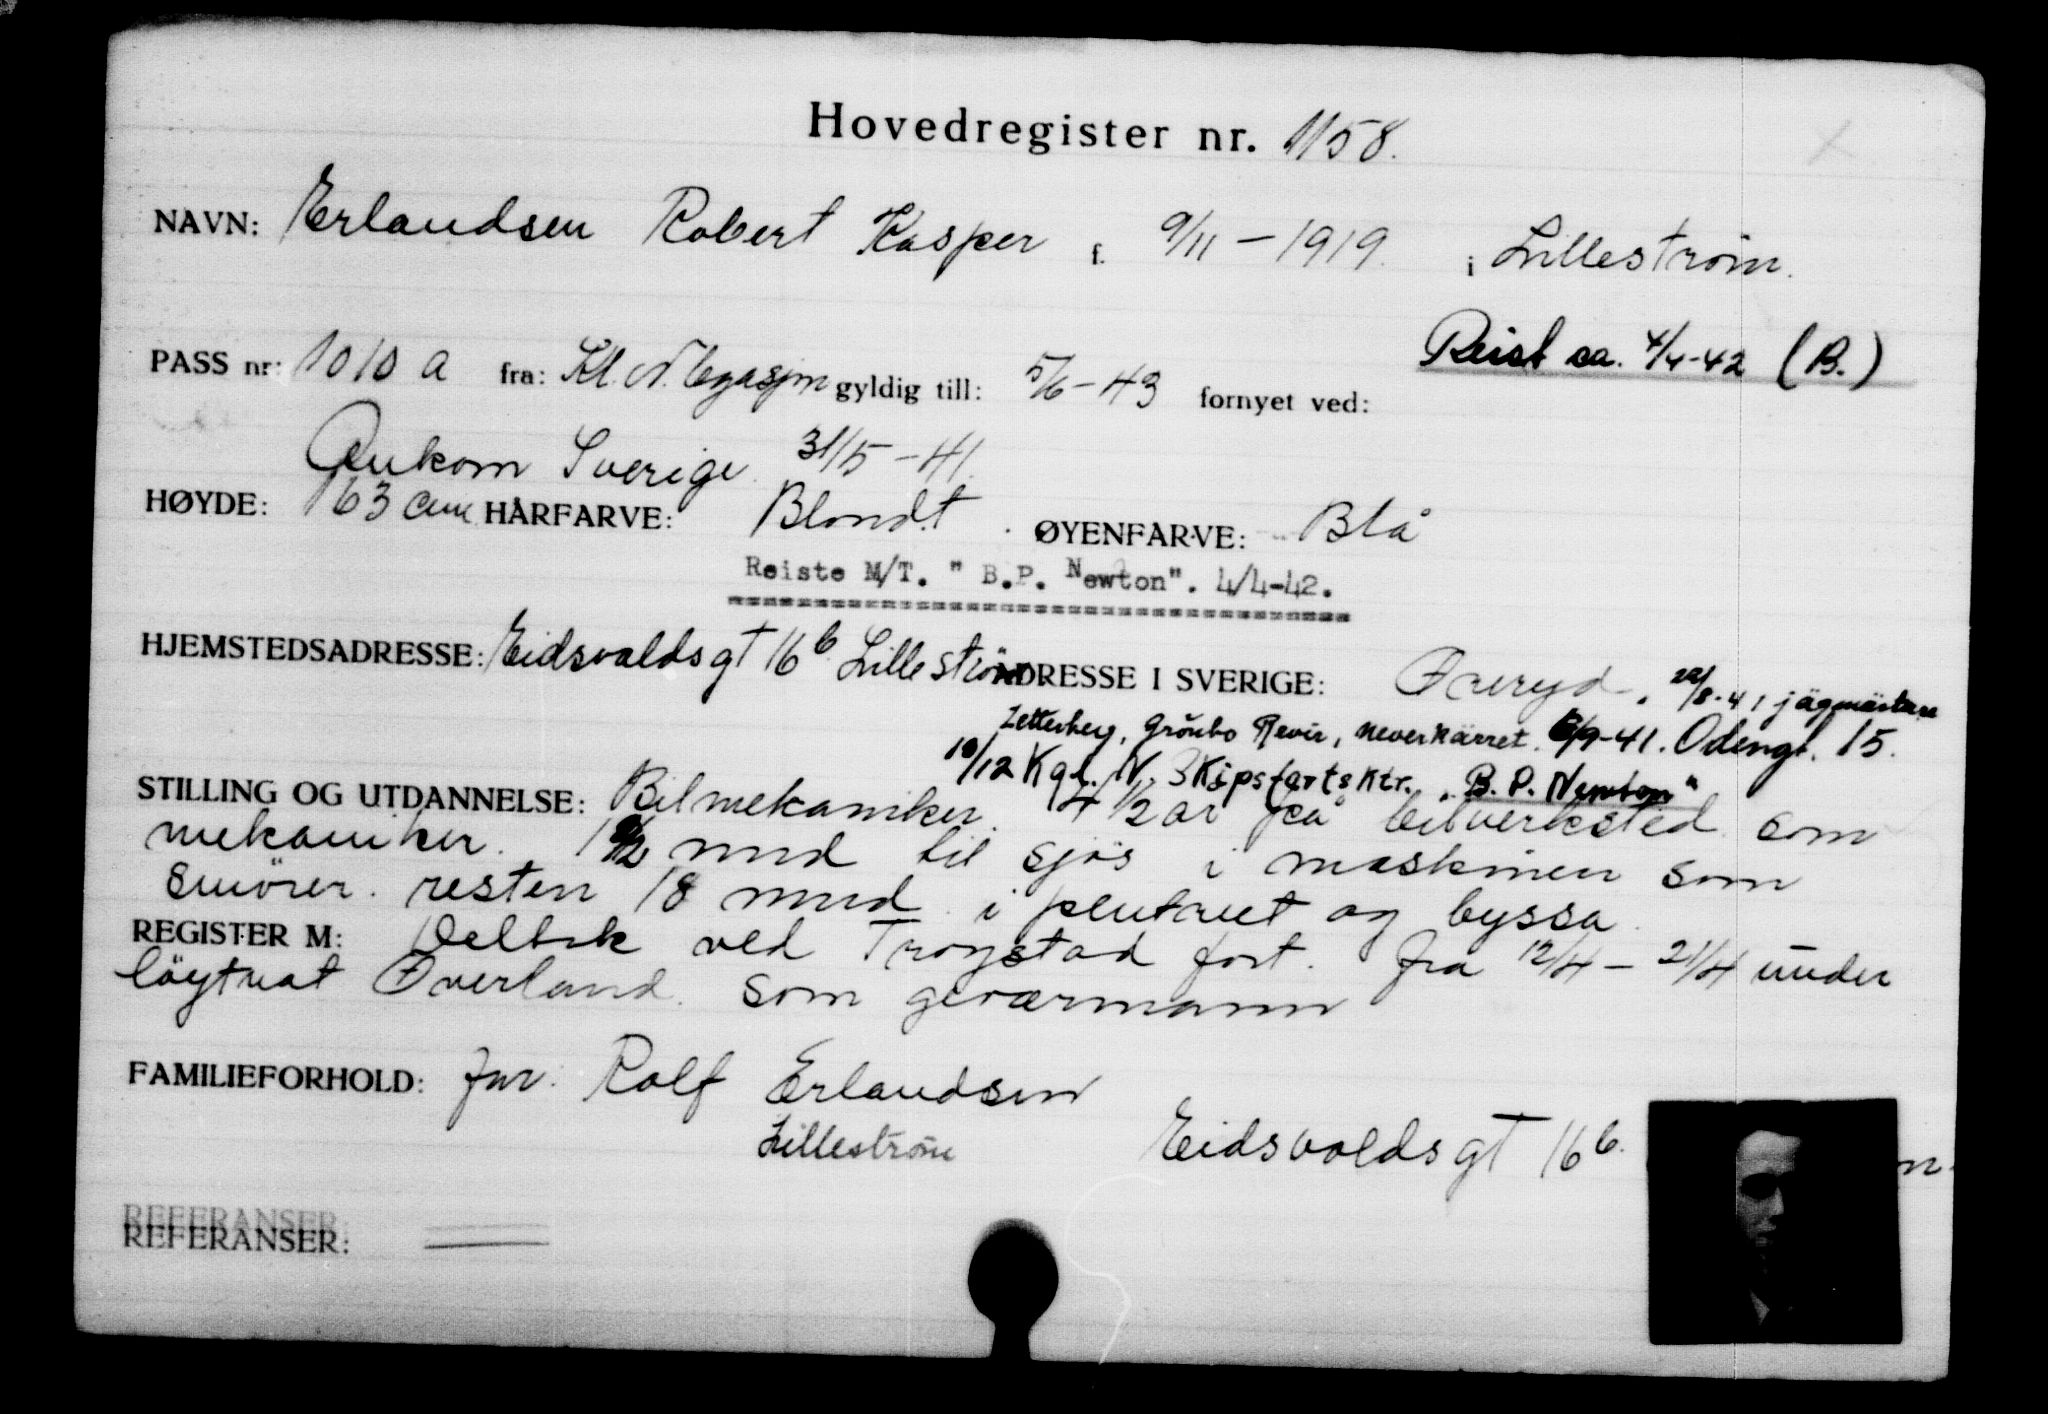 Hovedregister nr. 1158.
NAVN: Erlandsen Robert Kasper f. 9/11 - 1919. i Lillestrøm.
Reist ca. 4/4-42 (B.)
PASS nr: 1010 a fra: Kl. N. legasjon gyldig till: 5/6 - 43 fornyet ved:
Ankom Sverige 31/5 - 41.
HØYDE: 163 cm HÅRFARVE: Blondt. ØYENFARVE: Blå
Reiste M/T. " B.P. Newton". 4/4-42.
HJEMSTEDSADRESSE: Eidsvoldsgt 16 b. Lillestrøm ADRESSE I SVERIGE: Øreryd. 22/8-41 jägmästare
Zetterberg, Grönbo Revir, Neverkärret. 6/9-41. Odengt. 15.
10/12 Kgl. N. Skipsfartsktr. "B. P. Newton"
STILLING OG UTDANNELSE: Bilmekaniker. 4 1/2 år på bilverksted som
mekaniker. mnd til sjøs i maskinen som
smörer. resten 18 mnd. i pentriet og byssa.
REGISTER M: Deltok ved Trøgstad fort. fra 12/4 - 21/4 under
löytnat Øverland. som geværmann
FAMILIEFORHOLD: far: Rolf Erlandsen
Lillestrøm Eidsvoldsgt 16 b. m.
REFERANSER:
REFERANSER: